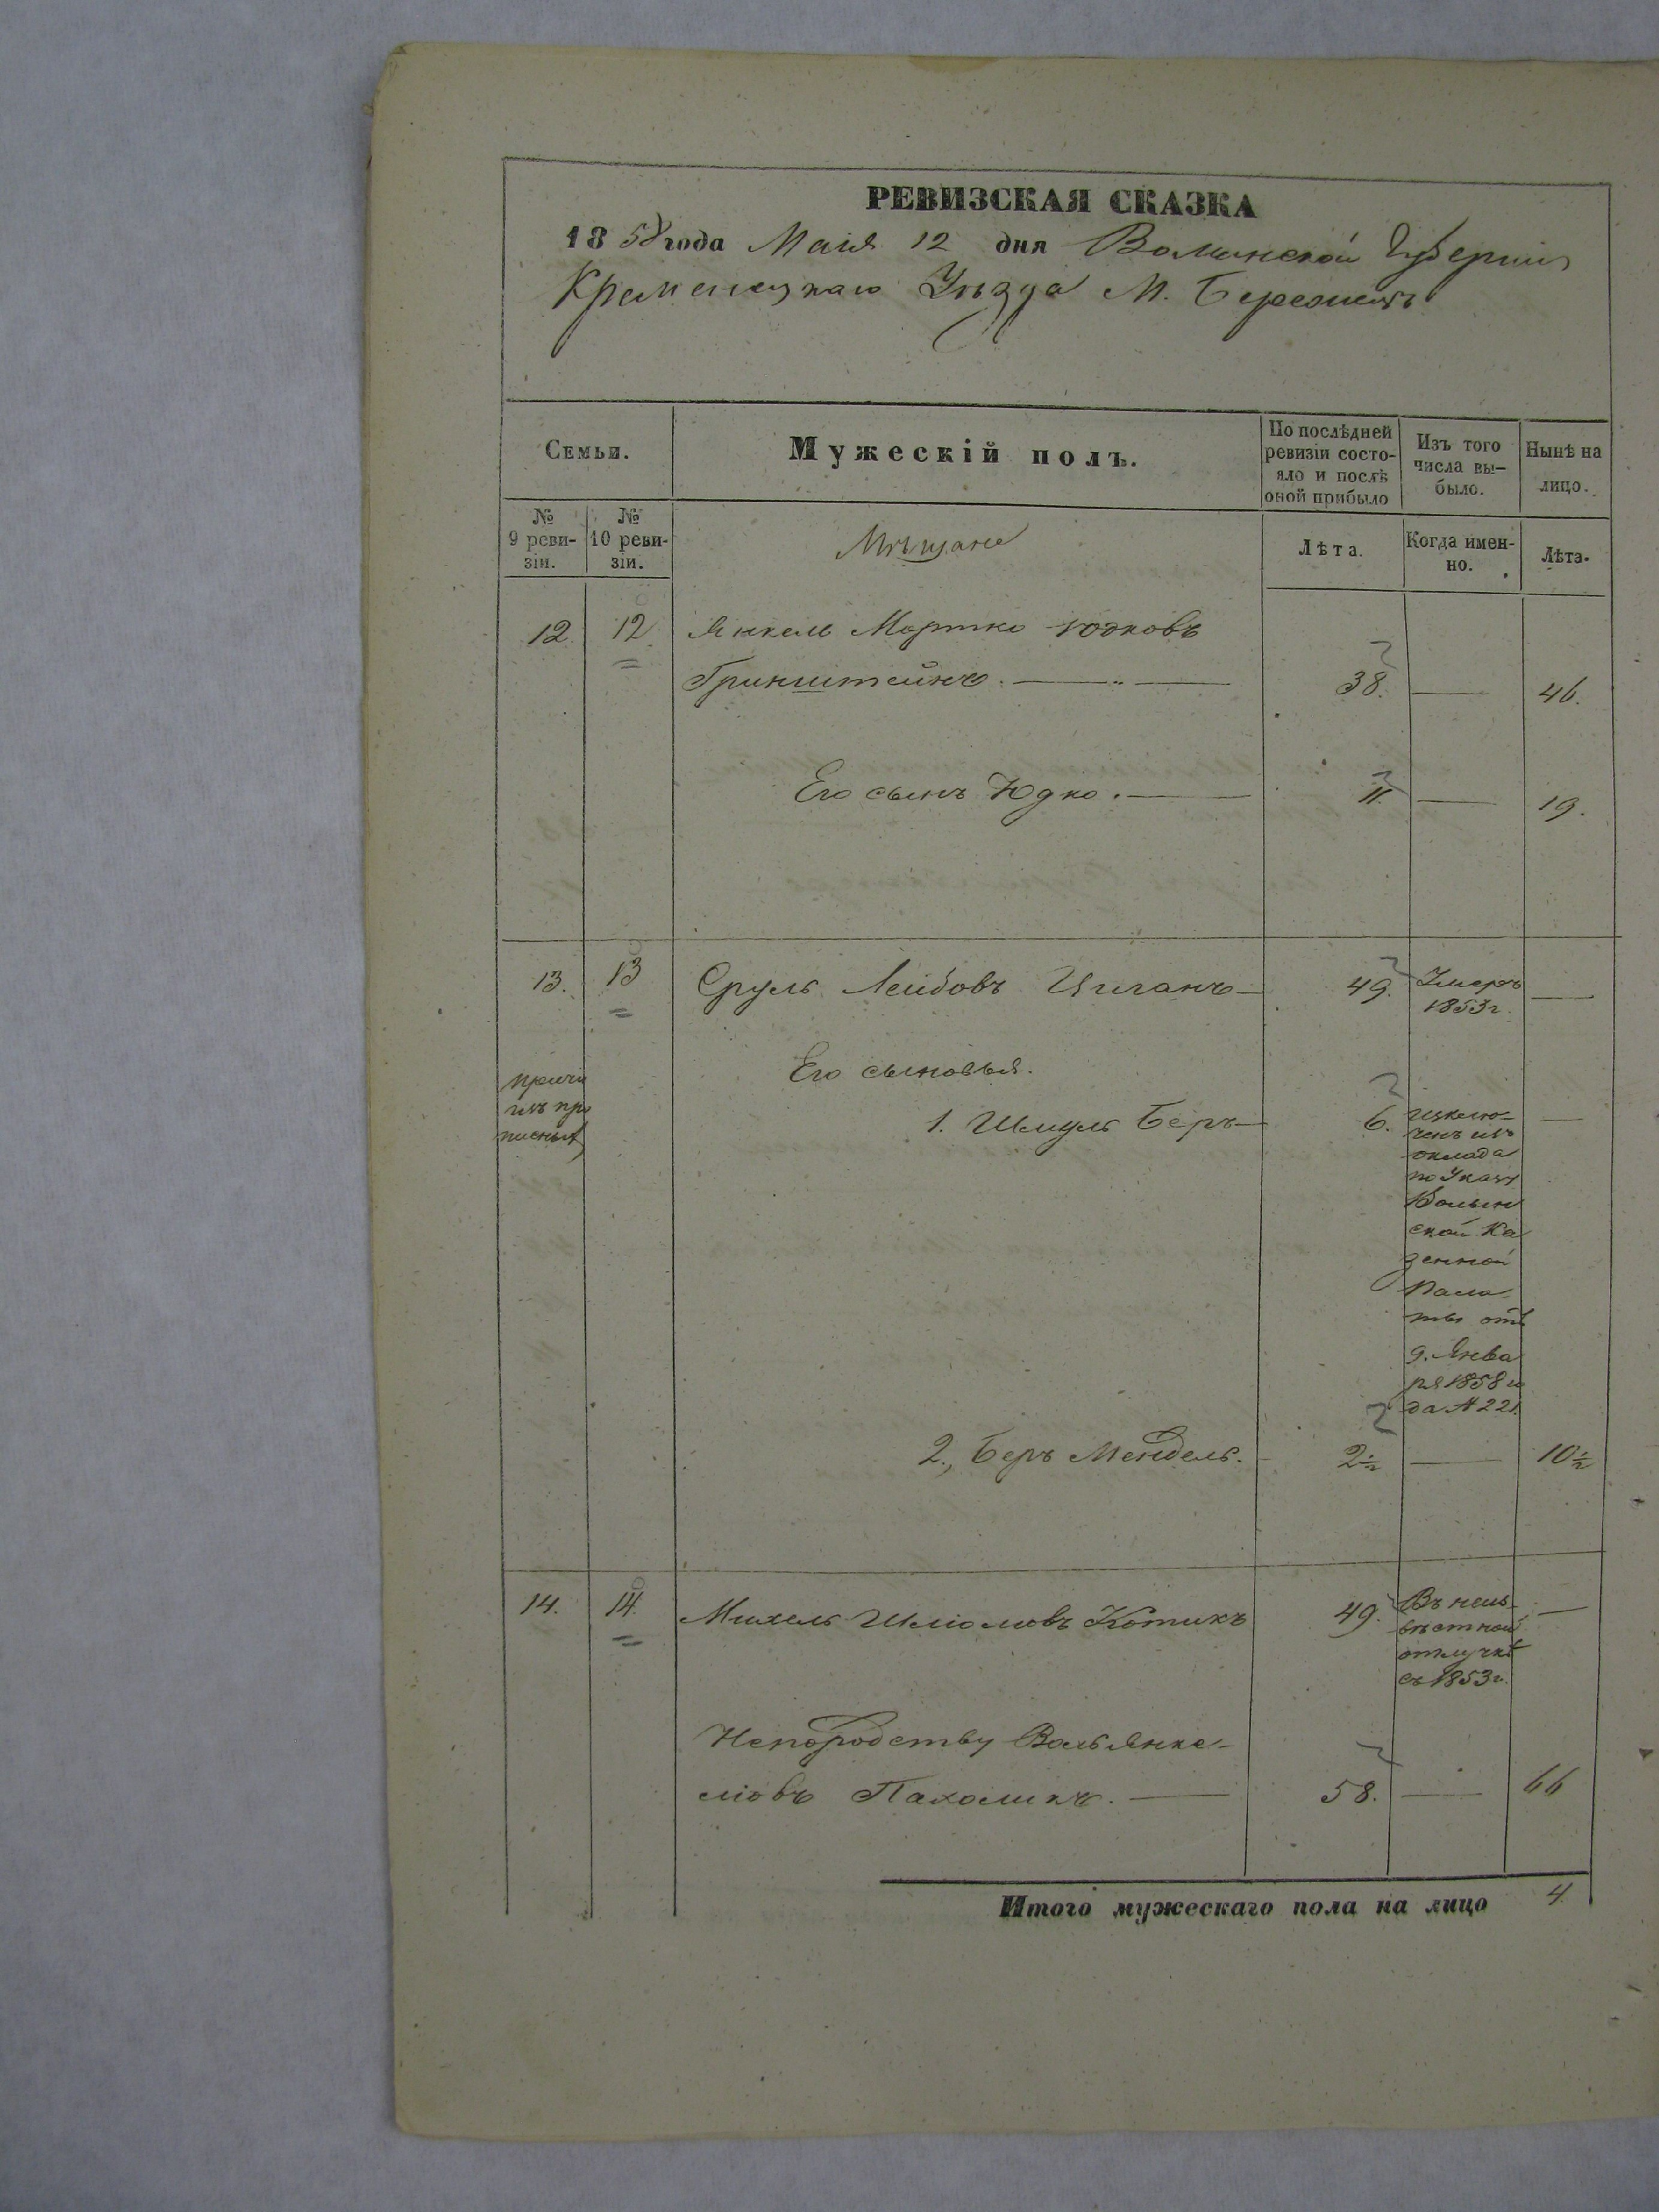 РЕВИЗСКАЯ СКАЗКА
1858 года Маія 12 дня Волынской Губерніи
Кременецкаго Уѣзда М. Бережецъ
Семьи.
Мужескій полъ.
По послѣдней
ревизіи состо-
яло и послѣ
оной прибыло
Изъ того
числа вы-
было.
Нынѣ на
лицо.
№
9 реви-
зіи.
№
10 реви-
зіи.
Мѣщане
Лѣта.
Когда имен-
но.
Лѣта.
12. 12 Янкель Мортко Юдковъ
Гринштейнъ. 38. 46.
Его сынъ Юдко. 11. 19.
13. 13 Сруль Лейбовъ Циганъ 49. Умеръ
1853 г.
Его сыновья.
1. Шмуль Беръ 6. исклю-
ченъ изъ
оклада
по Указу
Волын
ской Ка
зенной
Пала
ты отъ
9. Янва
ря 1858 го
да № 221.
2., Беръ Мендель. 2½ 10½
14. 14. Михель Шліомовъ Котикъ 49. Въ неиз-
вѣстной
отлучкѣ
съ 1853 г.
Непородству Воль Янке-
ліовъ Пахоликъ. 58. 66
Итого мужескаго пола на лицо 4